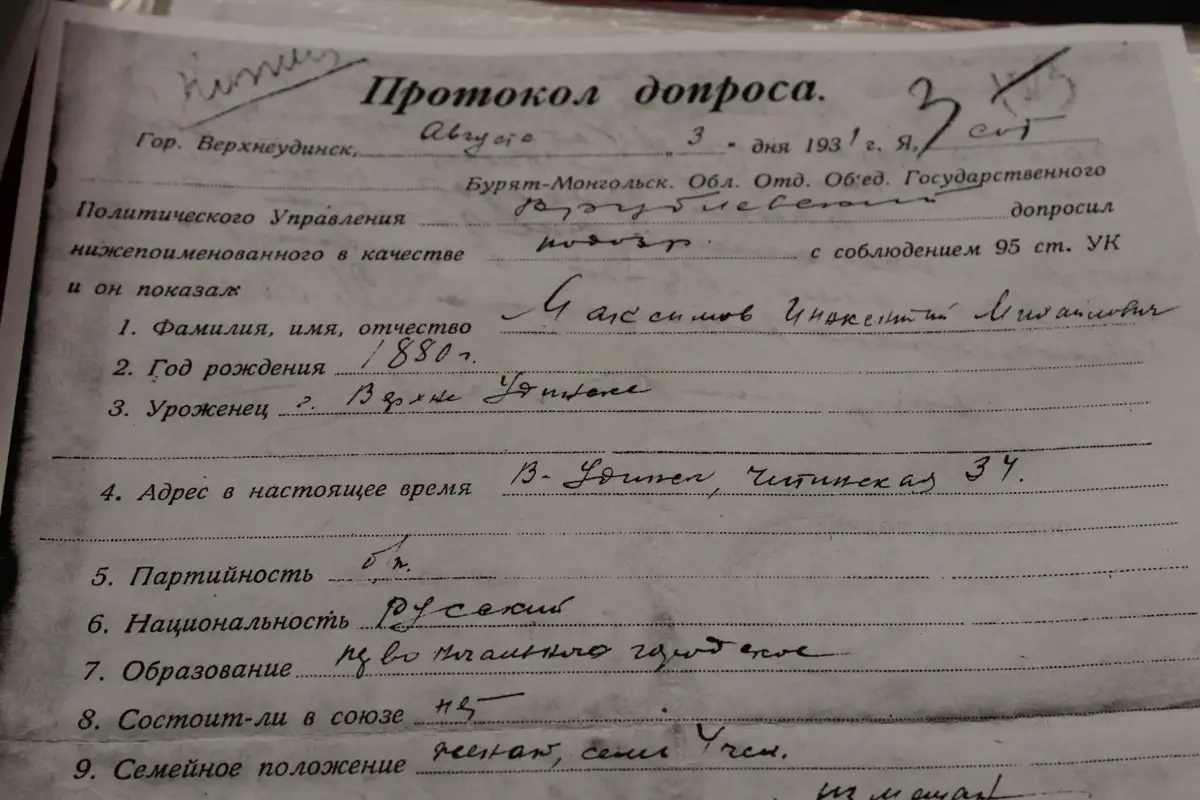 Протокол допроса. 3
Гор. Верхнеудинск, Августа „ 3 " дня 1931 г. Я,
Бурят-Монгольск. Обл. Отд. Об'ед. Государственного
Политического Управления Врублевский допросил
нижепоименованного в качестве подозр. с соблюдением 95 ст. УК
и он показал:
1. Фамилия, имя, отчество Максимов Инокентий Михайлович
2. Год рождения 1880 г.
3. Уроженец г. Верхне Удинск
4. Адрес в настоящее время В-Удинск, Читинская 34.
5. Партийность б/п.
6. Национальность Русский
7. Образование городское
8. Состоит-ли в союзе нет
9. Семейное положение женат, семь 4 чел.
из мещан